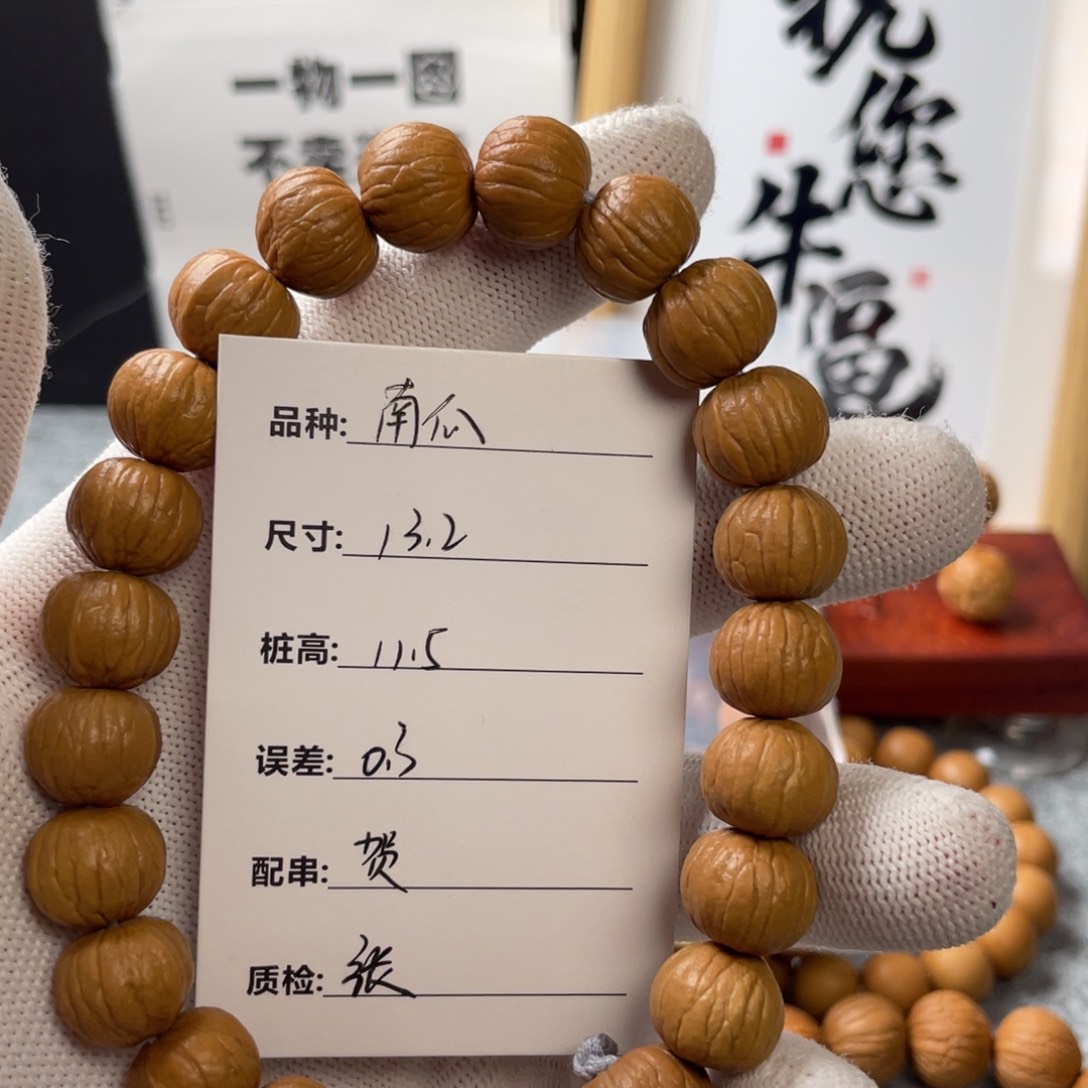 一物一图
不卖
祝
您
牛
福
品种: 南瓜
尺寸: 13.2
桩高: 11.5
误差: 0.3
配串: 贺
质检: 张